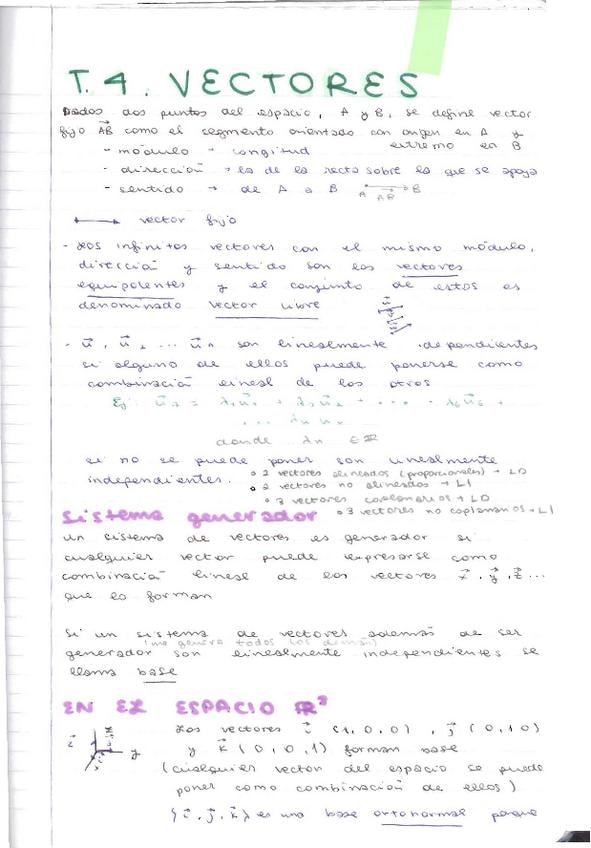 T.4. VECTORES
Dados dos puntos del espacio, A y B, se define vector
fijo AB⃗ como el segmento orientado con origen en A y
extremo en B
- módulo → longitud
- dirección → la de la recta sobre la que se apoya
- sentido → de A a B A AB⃗ B
vector fijo
- Los infinitos vectores con el mismo módulo,
dirección y sentido son los vectores
equipolentes y el conjunto de estos es
denominado vector libre
- u⃗, u⃗₂ ... u⃗n son linealmente dependientes
si alguno de ellos puede ponerse como
combinación lineal de los otros
Ej: = λ₁u⃗₁ + λ₂u⃗₂ + ... +
... λn un
donde λn ∈ ℝ
si no se puede poner son linealmente
independientes.
• 2 vectores alineados (proporcionales) → LD
• 2 vectores no alineados → LI
• 3 vectores coplanarios → LD
• 3 vectores no coplanarios → LI
Sistema generador
un sistema de vectores es generador si
cualquier vector puede expresarse como
combinación lineal de los vectores x⃗, y⃗, z⃗ ...
que lo forman
Si un sistema de vectores además de ser
(me genera todos los demás)
generador son linealmente independientes se
llama base
EN EL ESPACIO ℝ³
Los vectores i⃗ (1,0,0), j⃗ (0,1,0)
y k⃗ (0,0,1) forman base
(cualquier vector del espacio se puede
poner como combinación de ellos)
{i⃗, j⃗, k⃗} es una base ortonormal porque